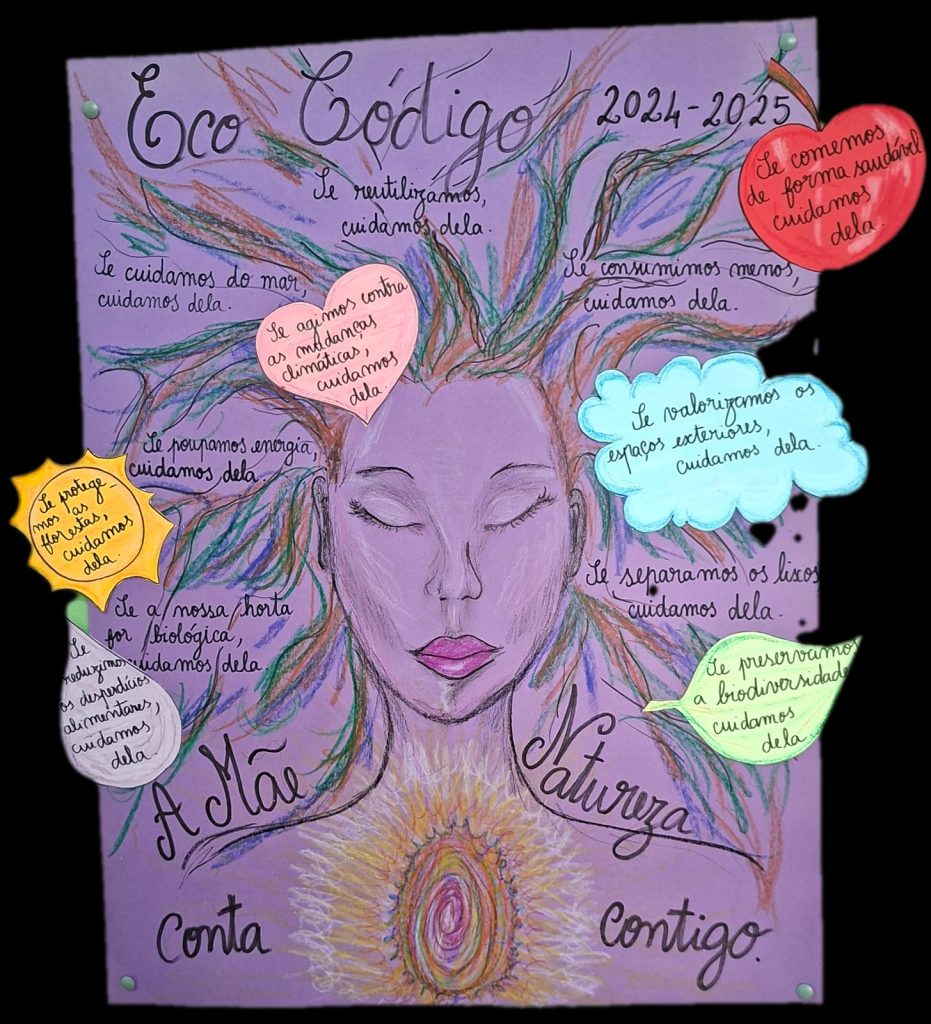 Eco Código 2024-2025
Se comemos
de forma saudável
cuidamos
dela.
Se reutilizámos,
cuidamos dela.
Se cuidamos do mar,
cuidamos dela.
Se consumimos menos,
cuidamos dela.
Se agimos contra
as mudanças
climáticas,
cuidamos
dela.
Se valorizamos os
espaços exteriores,
cuidamos dela.
Se poupamos energia,
cuidamos dela.
Se protege-
mos as
florestas,
cuidamos
dela.
Se separamos os lixos
cuidamos dela.
Se a nossa horta
for biológica,
cuidamos dela.
Se
reduzimos
os desperdícios
alimentares,
cuidamos
dela
Se preservamos
a biodiversidade
cuidamos
dela.
A Mãe Natureza
Conta Contigo.